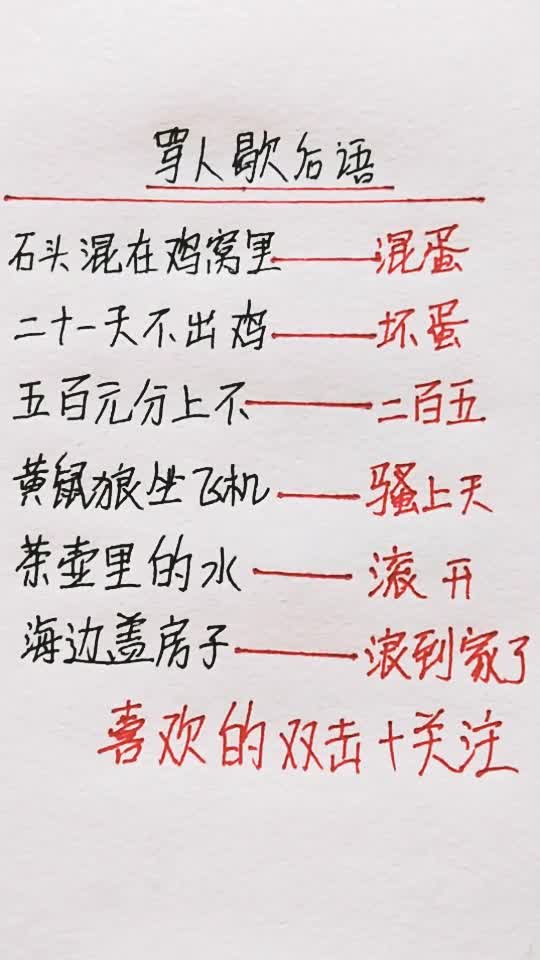 骂人歇后语
石头混在鸡窝里——混蛋
二十一天不出鸡——坏蛋
五百元分上不——二百五
黄鼠狼坐飞机——骚上天
茶壶里的水——滚开
海边盖房子——浪到家了
喜欢的双击+关注